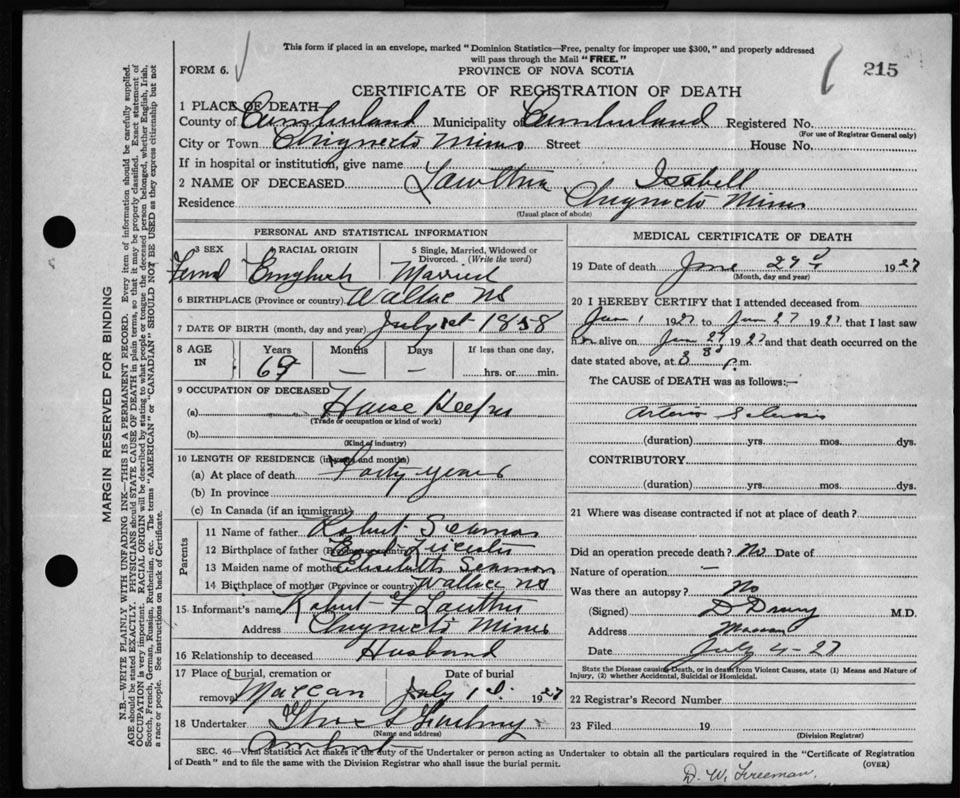 This form if placed in an envelope, marked "Dominion Statistics—Free, penalty for improper use $300," and properly addressed
will pass through the Mail "FREE."
FORM 6.
PROVINCE OF NOVA SCOTIA
215
CERTIFICATE OF REGISTRATION OF DEATH
1 PLACE OF DEATH
County of Cumberland Municipality of Cumberland Registered No.
(For use of Registrar General only)
City or Town Chignecto Mines Street House No.
If in hospital or institution, give name
2 NAME OF DECEASED Isabell
Residence Chignecto Mines
(Usual place of abode)
PERSONAL AND STATISTICAL INFORMATION
3 SEX 4 RACIAL ORIGIN 5 Single, Married, Widowed or Divorced. (Write the word)
English Married
6 BIRTHPLACE (Province or country) Wallace NS
7 DATE OF BIRTH (month, day and year) July 1st 1858
8 AGE IN Years Months Days If less than one day,
69 — — hrs. or min.
9 OCCUPATION OF DECEASED
(a) House Keeper
(Trade or occupation or kind of work)
(b)
(Kind of industry)
10 LENGTH OF RESIDENCE (in years and months)
(a) At place of death Forty years
(b) In province
(c) In Canada (if an immigrant)
Parents
11 Name of father Robert Seaman
12 Birthplace of father
13 Maiden name of mother Elisabeth Seaman
14 Birthplace of mother (Province or country) Wallace NS
15 Informant's name Robert
Address Chignecto Mines
16 Relationship to deceased Husband
17 Place of burial, cremation or removal Date of burial
Maccan July 1 1927
18 Undertaker
(Name and address)
Amherst
MEDICAL CERTIFICATE OF DEATH
19 Date of death June 29 1927
(Month, day and year)
20 I HEREBY CERTIFY that I attended deceased from
June 1 1927 to June 27 1927 that I last saw
alive on June 27 1927 and that death occurred on the
date stated above, at p.m.
The CAUSE of DEATH was as follows:—
Arterio Sclerosis
(duration) yrs. mos. dys.
CONTRIBUTORY
(duration) yrs. mos. dys.
21 Where was disease contracted if not at place of death?
Did an operation precede death? No Date of
Nature of operation —
Was there an autopsy? No
(Signed) M.D.
Address Maccan
Date July 4-27
State the Disease causing Death, or in death from Violent Causes, state (1) Means and Nature of
Injury, (2) whether Accidental, Suicidal or Homicidal.
22 Registrar's Record Number
23 Filed 19
(Division Registrar)
SEC. 46—Vital Statistics Act makes it the duty of the Undertaker or person acting as Undertaker to obtain all the particulars required in the "Certificate of Registration
of Death" and to file the same with the Division Registrar who shall issue the burial permit.
(OVER)
D. W. Freeman.
MARGIN RESERVED FOR BINDING
N.B.—WRITE PLAINLY WITH UNFADING INK—THIS IS A PERMANENT RECORD. Every item of information should be carefully supplied.
AGE should be stated EXACTLY. PHYSICIANS should STATE CAUSE OF DEATH in plain terms, so that it may be properly classified. Exact statement of
OCCUPATION is very important. RACIAL ORIGIN will be described by stating to what people or tongue the deceased person belonged, whether English, Irish,
Scotch, French, German, Russian, Ruthenian, etc. The terms "AMERICAN" or "CANADIAN" SHOULD NOT BE USED as they express citizenship but not
a race or people. See instructions on back of Certificate.